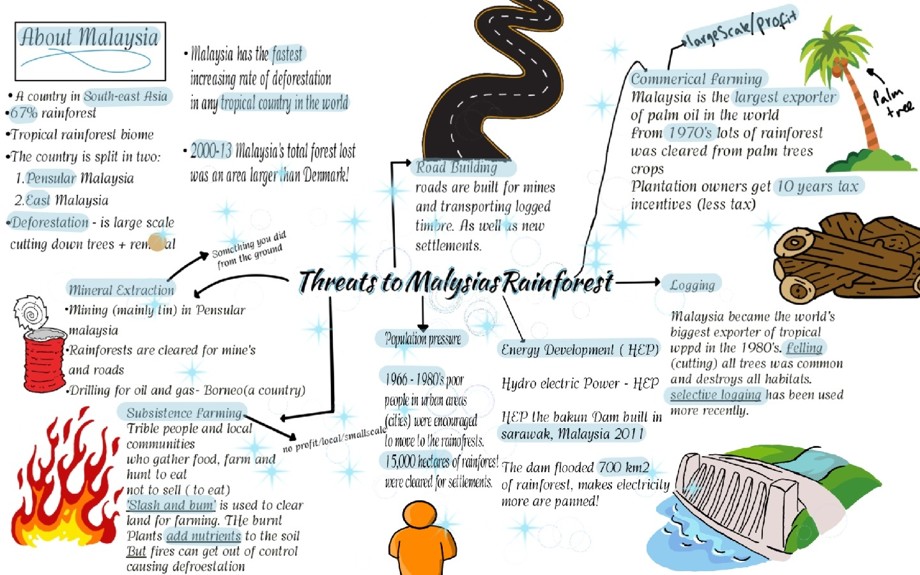 About Malaysia
• A country in South-east Asia
•67% rainforest
•Tropical rainforest biome
•The country is split in two:
1.Pensular Malaysia
2.East Malaysia
•Deforestation - is large scale
cutting down trees +
• Malaysia has the fastest
increasing rate of deforestation
in any tropical country in the world
• 2000-13 Malaysia's total forest lost
was an area larger than Denmark!
Road Building
roads are built for mines
and transporting logged
timbre. As well as new
settlements.
largeScale/profit
Commerical Farming
Malaysia is the largest exporter
of palm oil in the world
from 1970's lots of rainforest
was cleared from palm trees
crops
Plantation owners get 10 years tax
incentives (less tax)
Palm
tree
Something you did
from the ground
Threats to Malysias Rainforest
Mineral Extraction
•Mining (mainly tin) in Pensular
malaysia
•Rainforests are cleared for mine's
and roads
•Drilling for oil and gas- Borneo(a country)
Subsistence Farming
Trible people and local
communities
who gather food, farm and
hunt to eat
not to sell ( to eat)
'Slash and bum' is used to clear
land for farming. THe burnt
Plants add nutrients to the soil
But fires can get out of control
causing defroestation
no profit/local/smallscale
Population pressure
1966 - 1980's poor
people in urban areas
(cities) were encouraged
to move to the rainofrests.
15,000 hectares of rainforest
were cleared for settlements.
Energy Development ( HEP)
Hydro electric Power - HEP
HEP the bakun Dam built in
sarawak, Malaysia 2011
The dam flooded 700 km2
of rainforest, makes electricity
more are panned!
Logging
Malaysia became the world's
biggest exporter of tropical
wppd in the 1980's. felling
(cutting) all trees was common
and destroys all habitats.
selective logging has been used
more recently.